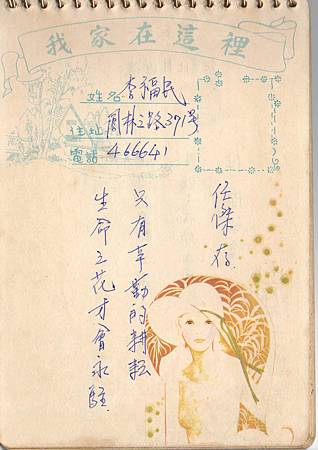 我家在這裡
姓名 李福民
住址 鳳林三路371號
電話 466641
任傑存
只有辛勤的耕耘
生命之花才會永駐.